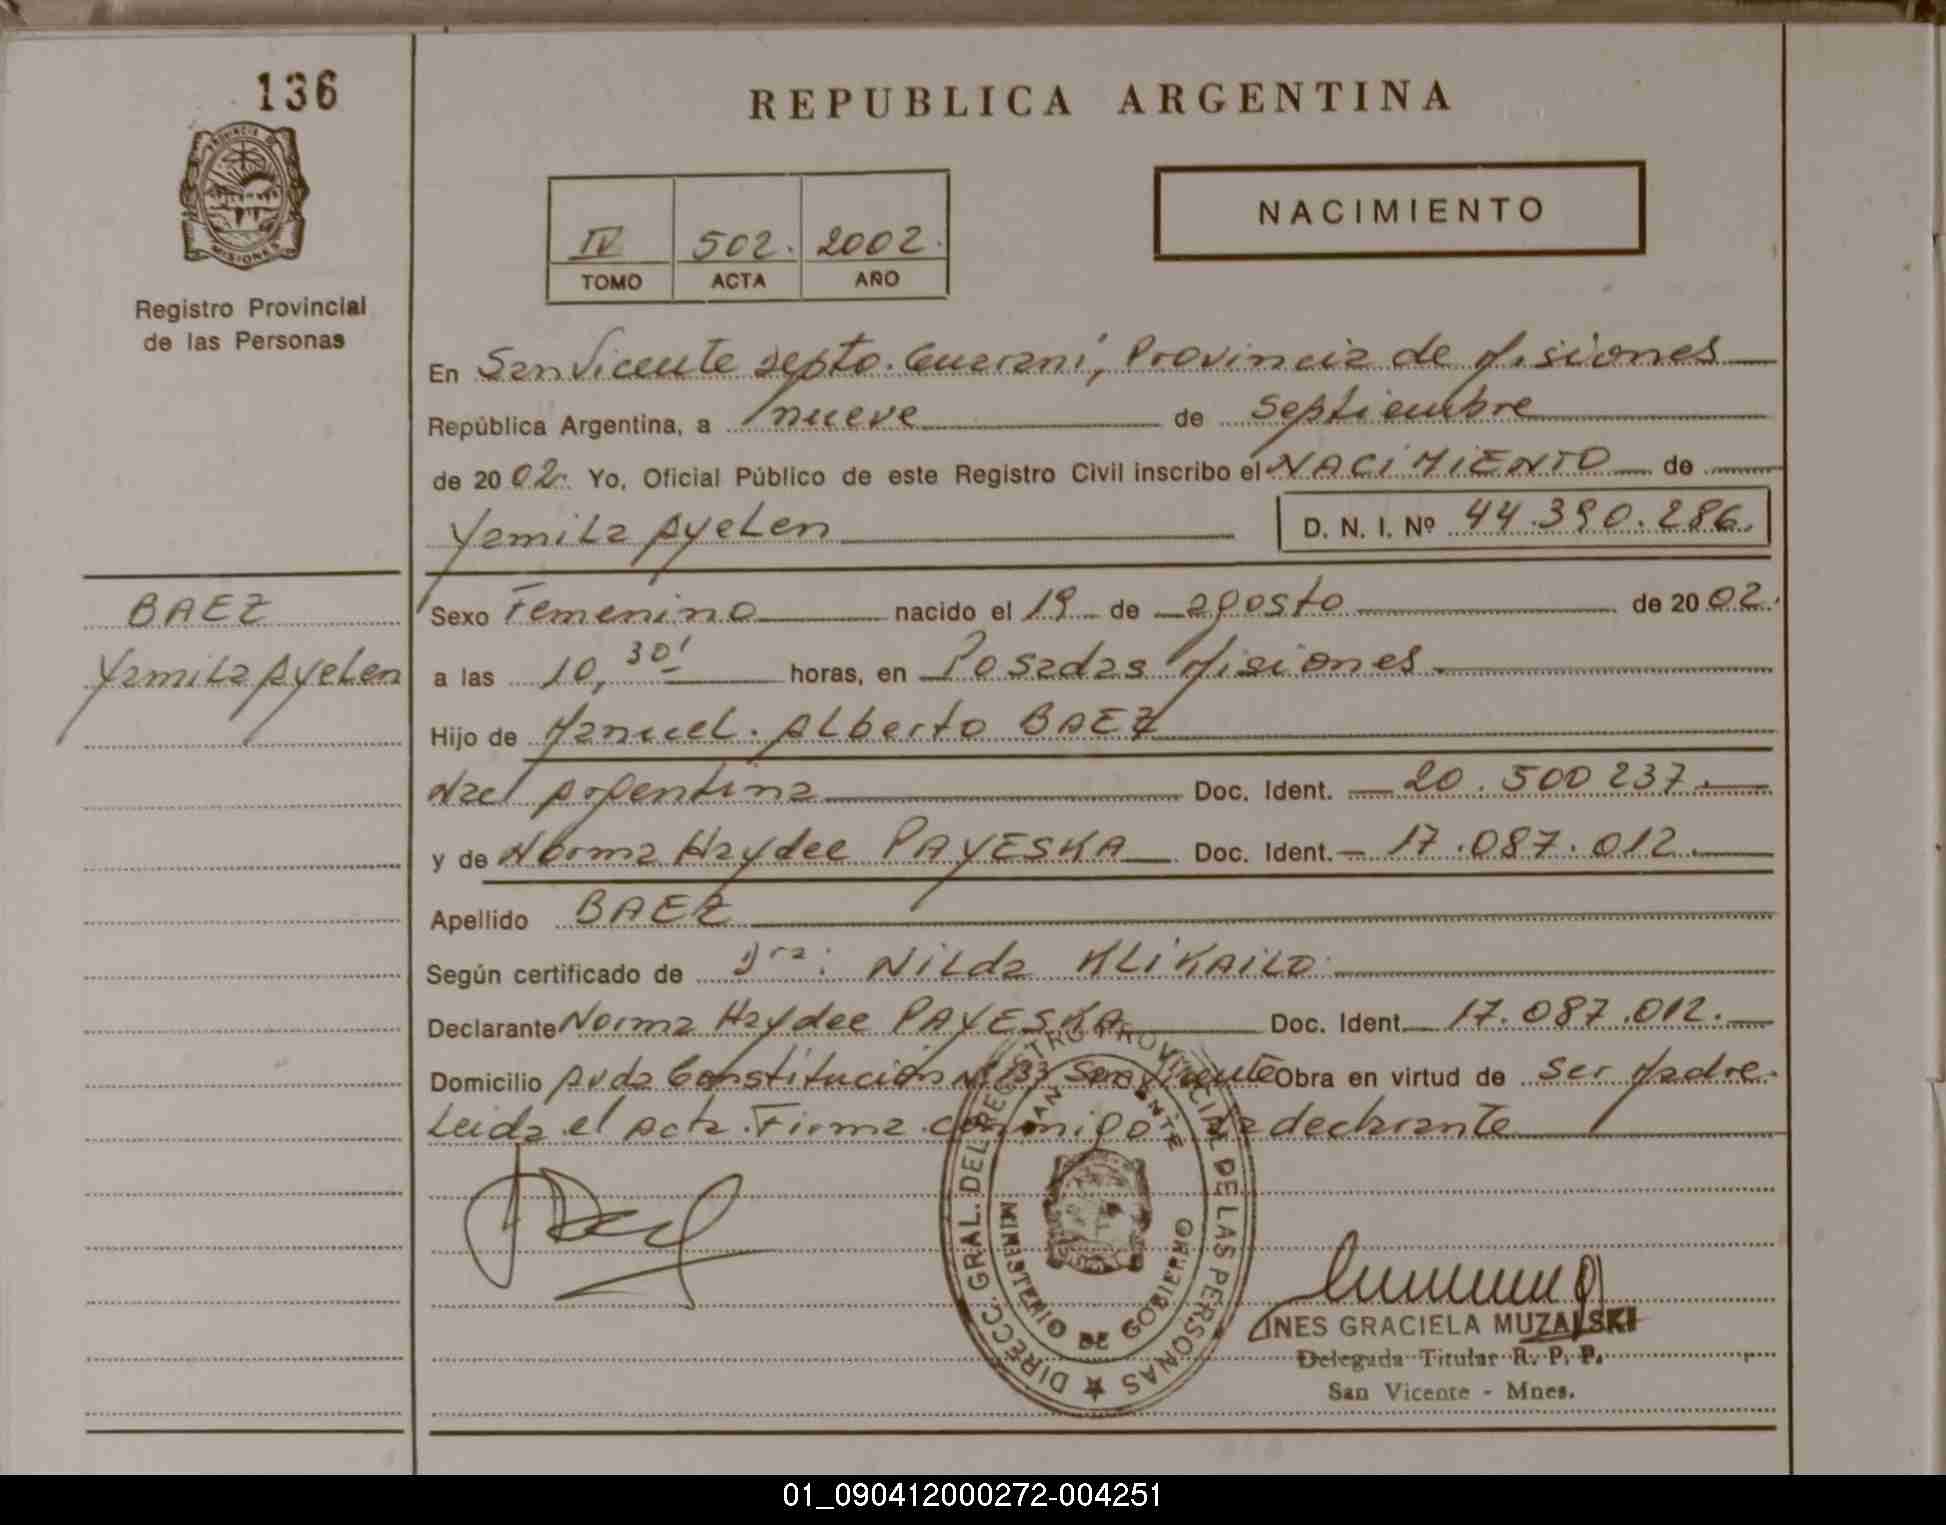 136
PROVINCIA DE
MISIONES
Registro Provincial
de las Personas
REPUBLICA ARGENTINA
NACIMIENTO
IV 502. 2002.
TOMO ACTA AÑO
En San Vicente Depto. Guarani, Provincia de Misiones
República Argentina, a nueve de Septiembre
de 2002. Yo, Oficial Público de este Registro Civil inscribo el NACIMIENTO de
Yamila Ayelen D. N. I. Nº 44.390.286.
BAEZ
Yamila Ayelen
Sexo Femenino nacido el 19 de agosto de 2002.
a las 10,30' horas, en Posadas Misiones.
Hijo de Manuel Alberto BAEZ
Nac/ Argentina Doc. Ident. 20.500 237.
y de Norma Haydee PAYESKA Doc. Ident. 17.087.012.
Apellido BAEZ
Según certificado de Dra: Nilda KLIKAILO
Declarante Norma Haydee PAYESKA Doc. Ident. 17.087.012.
Domicilio Avda Constitución Nº 133 San Vicente Obra en virtud de Ser Madre.
Leida el Acta. Firma conmigo la declarante
DIRECC. GRAL. DEL REGISTRO PROVINCIAL DE LAS PERSONAS
SAN VICENTE
MINISTERIO DE GOBIERNO
INES GRACIELA MUZALSKI
Delegada Titular R. P. P.
San Vicente - Mnes.
01_090412000272-004251